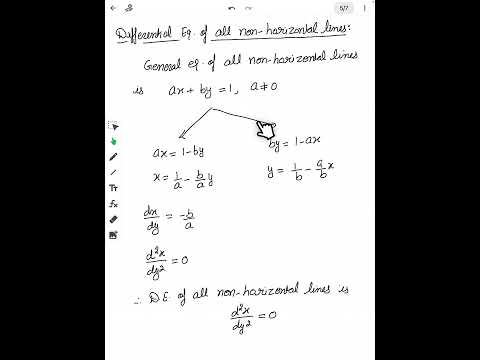 5/7
Differential Eq. of all non-horizontal lines:
General eq. of all non-horizontal lines
is ax + by = 1, a ≠ 0
ax = 1 - by
by = 1 - ax
x = 1/a - b/a y
y = 1/b - a/b x
dx/dy = -b/a
d²x/dy² = 0
∴ D.E. of all non-horizontal lines is
d²x/dy² = 0
TT
fx